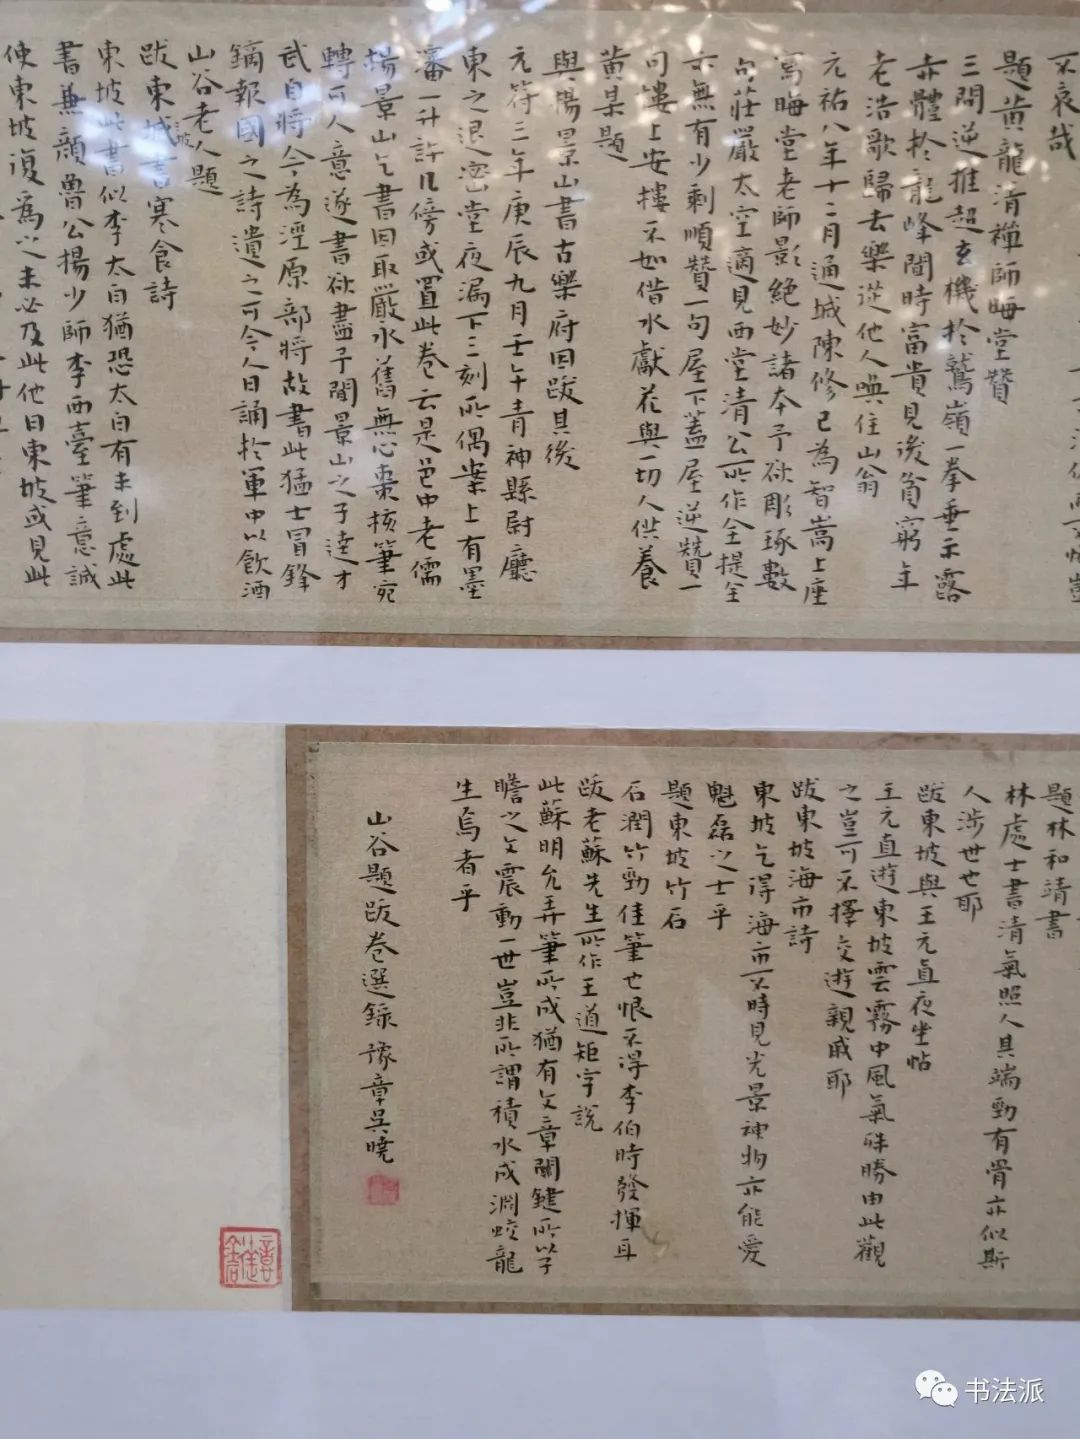 不哀哉
題黃龍清禪師晦堂贊
三問逆推超玄機於鷲嶺一拳垂示露
赤體於龍峰聞時富貴見後貧窮年
老浩歌歸去樂從他人喚住山翁
元祐八年十二月通城陳修己為智嵩上座
寫晦堂老師影絕妙諸本予欲彫琢數
句莊嚴太空適見西堂清公所作全提全
示無有少剩順贊一句屋下蓋屋逆贊一
句樓上安樓不如借水獻花與一切人供養
黃某題
與楊景山書古樂府因跋其後
元符三年庚辰九月壬午青神縣尉廳
東之退密堂夜漏下三刻所偶案上有墨
瀋一升許几傍或置此卷云是邑中老儒
楊景山乞書因取嚴永舊無心棗核筆宛
轉可人意遂書欲盡子聞景山之子達才
武自將今為涇原部將故書此猛士冒鋒
鏑報國之詩遺之可令人日誦於軍中以飲酒
山谷老人題
跋東坡書寒食詩
東坡此書似李太白猶恐太白有未到處此
書兼顏魯公楊少師李西臺筆意誠
使東坡復為之未必及此他日東坡或見此
題林和靖書
林處士書清氣照人其端勁有骨亦似斯
人涉世也耶
跋東坡與王元直夜坐帖
王元直遊東坡雲霧中風氣殊勝由此觀
之豈可不擇交遊親戚耶
跋東坡海市詩
東坡乞得海市不時見光景神物亦能愛
魁磊之士乎
題東坡竹石
石潤竹勁佳筆也恨不得李伯時發揮耳
跋老蘇先生所作王道矩字說
此蘇明允弄筆所成猶有文章關鍵所以子
瞻之文震動一世豈非所謂積水成淵蛟龍
生焉者乎
山谷題跋卷選錄 豫章吳曉
书法派